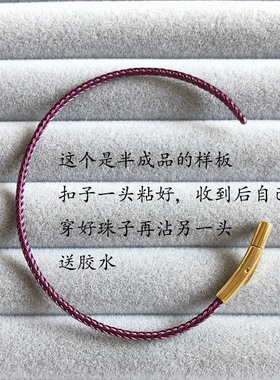 这个是半成品的样板
扣子一头粘好，收到后自己
穿好珠子再沾另一头
送胶水